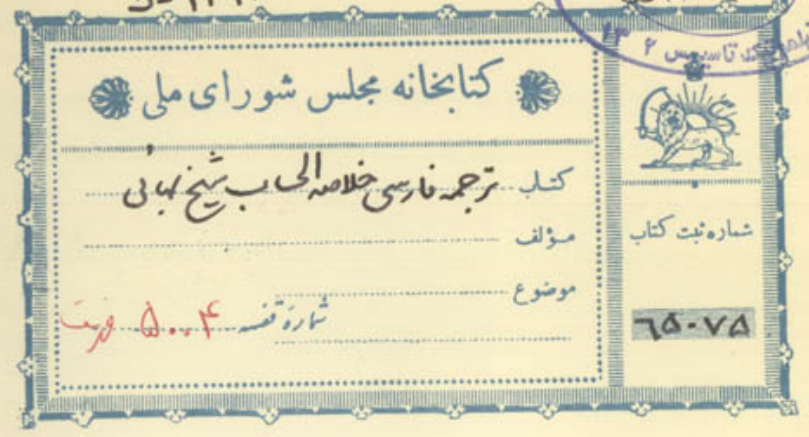 تاسیس ۱۳۰۲
کتابخانه مجلس شورای ملی
کتاب ترجمه فارسی خلاصه الحساب شیخ بهائی
مؤلف
موضوع
شماره قفسه ۵۰۰۴
شماره ثبت کتاب
٦٥٠٧٥